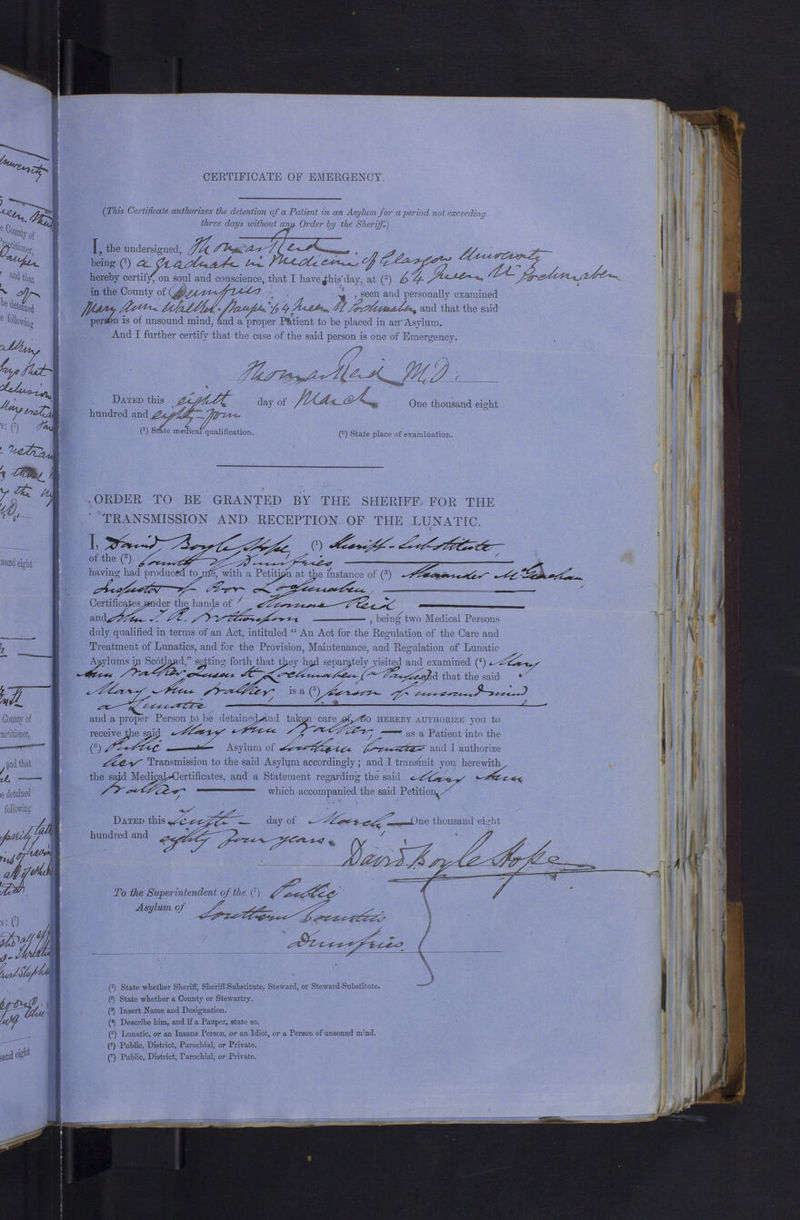 CERTIFICATE OF EMERGENCY.
(This Certificate authorizes the detention of a Patient in an Asylum for a period not exceeding
three days without any Order by the Sheriff.)
I, the undersigned, Thomas Reid
being (¹) a Graduate in Medicine of Glasgow University
hereby certify, on soul and conscience, that I have this day, at (²) 64 Queen St Lochmaben
in the County of Dumfries, seen and personally examined
Mary Ann Walker, Pauper 64 Queen St Lochmaben and that the said
person is of unsound mind, and a proper Patient to be placed in an Asylum.
And I further certify that the case of the said person is one of Emergency.
Thomas Reid M.D.
DATED this eighth day of March One thousand eight
hundred and eighty-four
(¹) State medical qualification. (²) State place of examination.
ORDER TO BE GRANTED BY THE SHERIFF FOR THE
TRANSMISSION AND RECEPTION OF THE LUNATIC.
I, David Boyle Hope (¹) Sheriff-Substitute,
of the (²) County of Dumfries
having had produced to me, with a Petition at the instance of (³) Alexander
Inspector of Poor Lochmaben,
Certificates under the hands of Thomas Reid
and John T. R. , being two Medical Persons
duly qualified in terms of an Act, intituled " An Act for the Regulation of the Care and
Treatment of Lunatics, and for the Provision, Maintenance, and Regulation of Lunatic
Asylums in Scotland," setting forth that they had separately visited and examined (⁴) Mary
Ann Walker Queen St Lochmaben (a Pauper) and that the said
Mary Ann Walker, is a (⁵) person of unsound mind,
a Lunatic
and a proper Person to be detained and taken care of, Do HEREBY AUTHORIZE you to
receive the said Mary Ann Walker, as a Patient into the
(⁶) Public Asylum of Southern Counties and I authorize
her Transmission to the said Asylum accordingly; and I transmit you herewith
the said Medical Certificates, and a Statement regarding the said Mary Ann
Walker, which accompanied the said Petition.
DATED this Tenth day of March One thousand eight
hundred and eighty four years.
David Boyle Hope
To the Superintendent of the (⁷) Public
Asylum of Southern Counties
Dumfries.
(¹) State whether Sheriff, Sheriff-Substitute, Steward, or Steward-Substitute.
(²) State whether a County or Stewartry.
(³) Insert Name and Designation.
(⁴) Describe him, and if a Pauper, state so.
(⁵) Lunatic, or an Insane Person, or an Idiot, or a Person of unsound mind.
(⁶) Public, District, Parochial, or Private.
(⁷) Public, District, Parochial, or Private.